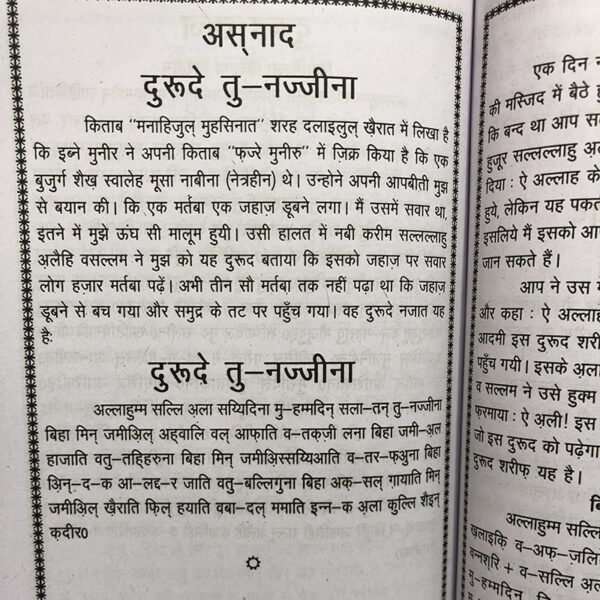 अस्नाद
दुरूदे तु–नज्जीना
किताब "मनाहिजुल् मुहसिनात" शरह दलाइलुल् ख़ैरात में लिखा है
कि इब्ने मुनीर ने अपनी किताब "फ़ज्रे मुनीरु" में ज़िक्र किया है कि एक
बुजुर्ग शैख़ स्वालेह मूसा नाबीना (नेत्रहीन) थे। उन्होने अपनी आपबीती मुझ
से बयान की। कि एक मर्तबा एक जहाज़ डूबने लगा। मैं उसमें सवार था,
इतने में मुझे ऊंघ सी मालूम हुयी। उसी हालत में नबी करीम सल्लल्लाहु
अ़लैहि वसल्लम ने मुझ को यह दुरूद बताया कि इसको जहाज़ पर सवार
लोग हज़ार मर्तबा पढ़ें। अभी तीन सौ मर्तबा तक नहीं पढ़ा था कि जहाज़
डूबने से बच गया और समुद्र के तट पर पहुँच गया। वह दुरूदे नजात यह
है:
दुरूदे तु–नज्जीना
अल्लाहुम्म सल्लि अ़ला सय्यिदिना मु–हम्मदिन् सला–तन् तु–नज्जीना
बिहा मिन् जमीअ़िल् अह्वालि वल् आफ़ाति व–तक़्ज़ी लना बिहा जमी–अ़ल
हाजाति वतु–तह्हिरुना बिहा मिन् जमीअ़िस्सय्यिआति व–तर–फ़अुना बिहा
अ़िन्–द–क आ–लद्द–र जाति वतु–बल्लिगुना बिहा अक्–सल् ग़ायाति मिन्
जमीअ़िल् ख़ैराति फ़िल् हयाति वबा–दल् ममाति इन्न–क अ़ला कुल्लि शैइन्
क़दीर०
एक दिन
की मस्जिद में बैठे
कि बन्द था आप
हुजूर सल्लल्लाहु
दिया : ऐ अल्लाह के
हुये, लेकिन यह
इसलिये मैं इसको
जान सकते हैं।
आप ने उस
और कहा : ऐ
आदमी इस दुरूद
पहुँच गयी। इसके
व सल्लम ने उसे हुक्म
फ़रमाया : ऐ अ़ली! इस
जो इस दुरूद को पढ़ेगा
दुरूद शरीफ़ यह है।
अल्लाहुम्म सल्लि